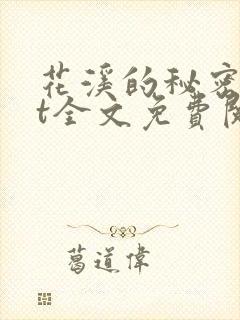 花溪的秘密
t全文免費閱
葛道偉